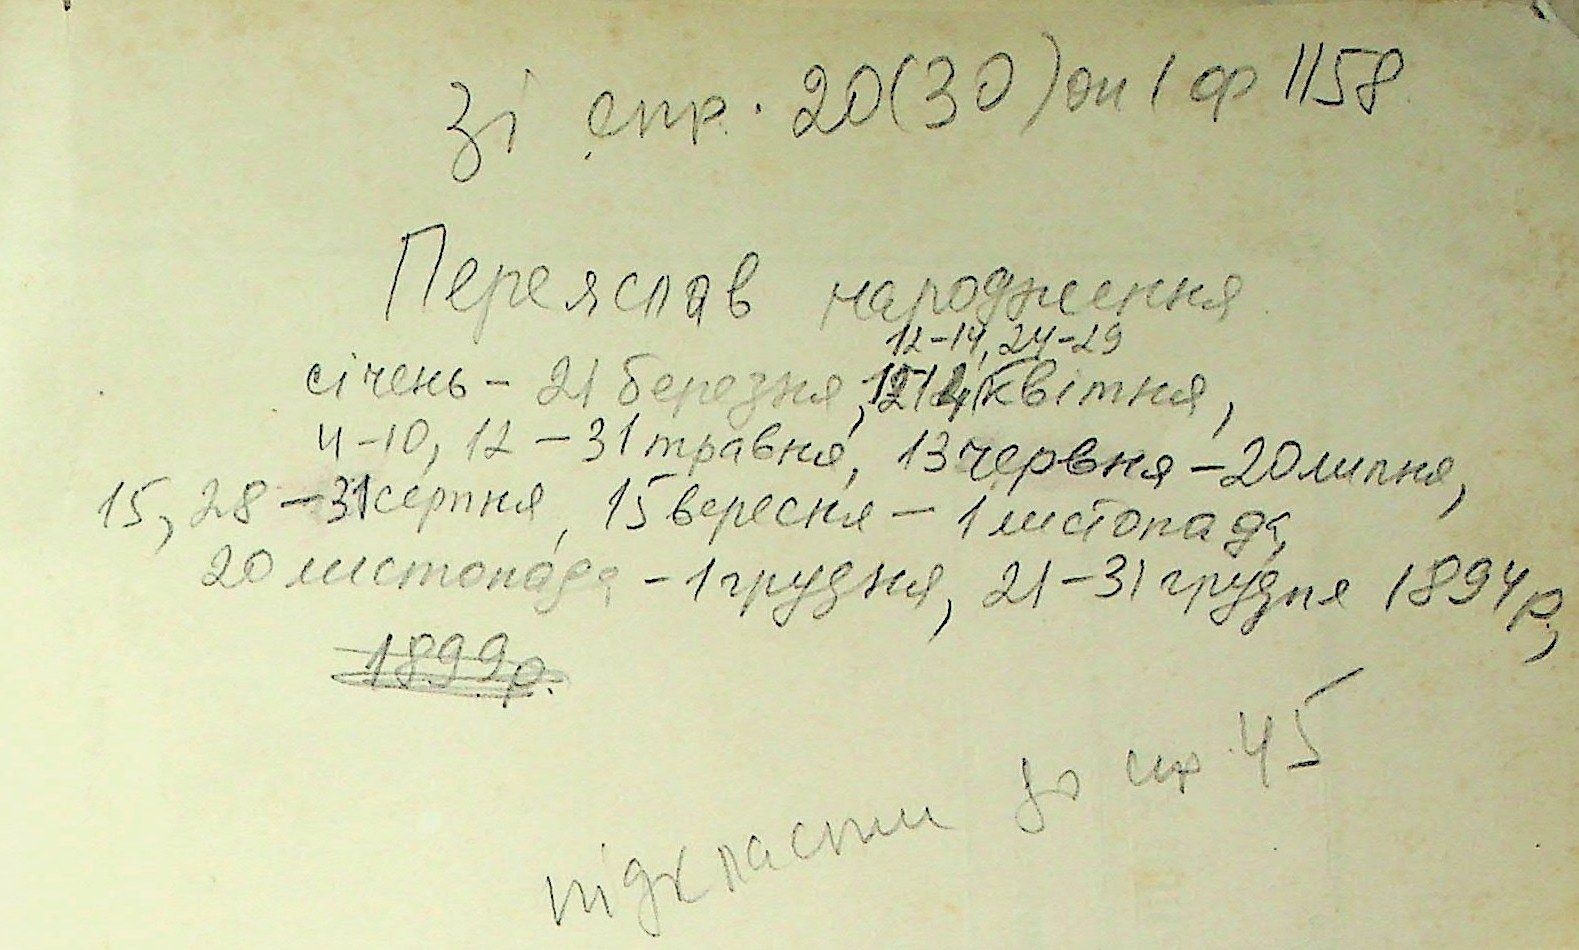 зі спр. 20(30) оп 1 ф 1158
Переяслав народження
12-14, 24-29
січень - 21 березня, квітня,
4-10, 12-31 травня, 13 червня - 20 липня,
15, 28-31 серпня, 15 вересня - 1 листопада,
20 листопада - 1 грудня, 21-31 грудня 1894 р.,
1899 р.
підкласти до спр. 45